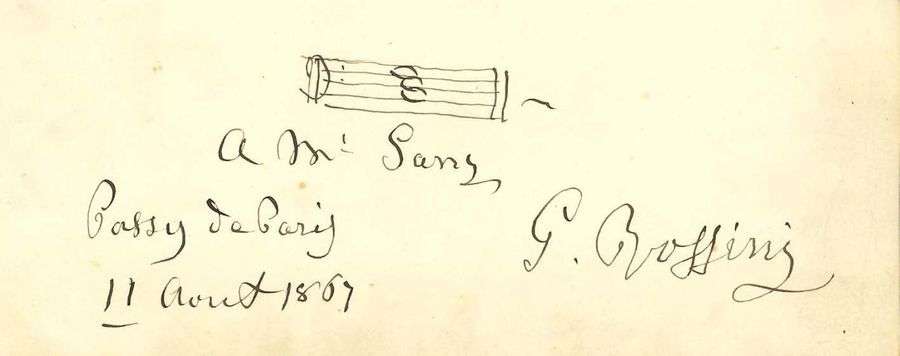 A Mr Sarry
Passy de Paris
G. Rossini
11 Aout 1867